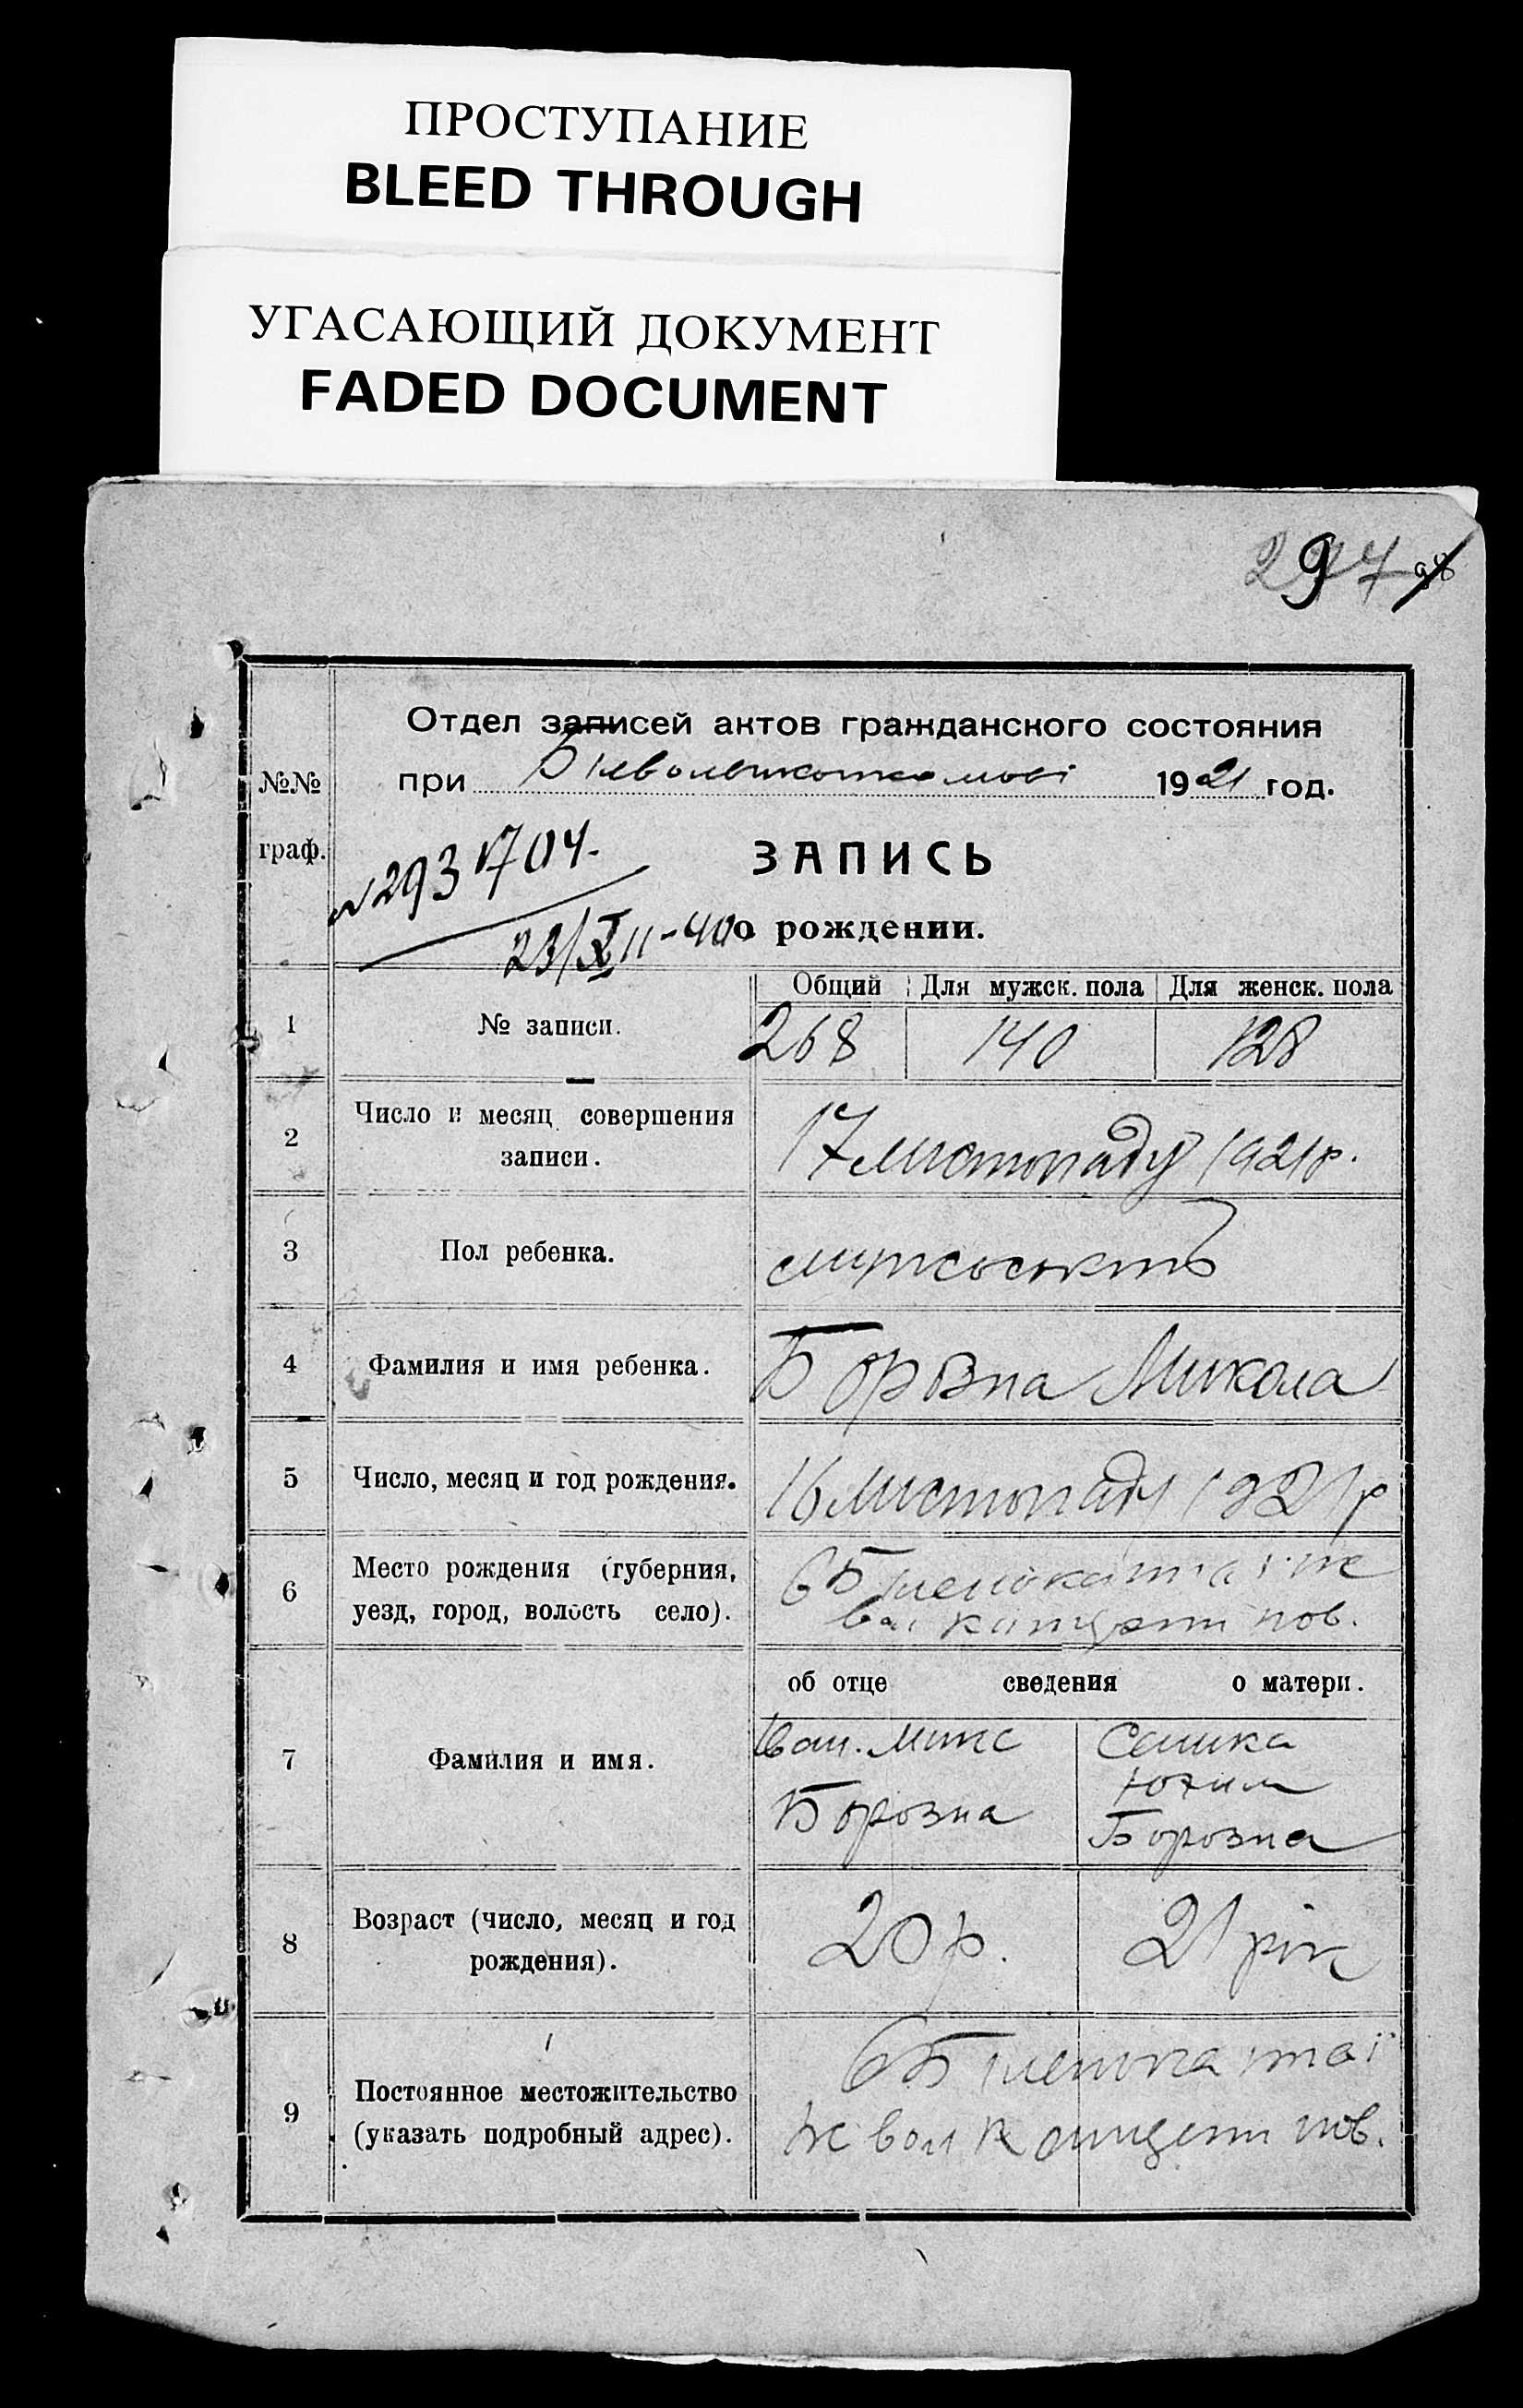 ПРОСТУПАНИЕ
BLEED THROUGH
УГАСАЮЩИЙ ДОКУМЕНТ
FADED DOCUMENT
297
98
№№
граф.
Отдел записей актов гражданского состояния
при 1921 год.
ЗАПИСЬ
о рождении.
N 293 1704.
23/XII-40
Общий Для мужск. пола Для женск. пола
1 № записи. 268 140 128
2 Число и месяц совершения
записи.
17 листопаду 1921 р.
3 Пол ребенка.
4 Фамилия и имя ребенка. Борозна Микола
5 Число, месяц и год рождения. 16 листопаду 1921 р
6 Место рождения (губерния,
уезд, город, волость село).
пов.
об отце сведения о матери.
7 Фамилия и имя.
Іван. Мик
Борозна
Юхим
Борозна
8 Возраст (число, месяц и год
рождения).
20 р. 21 рік
9 Постоянное местожительство
(указать подробный адрес).
ж вол пов.